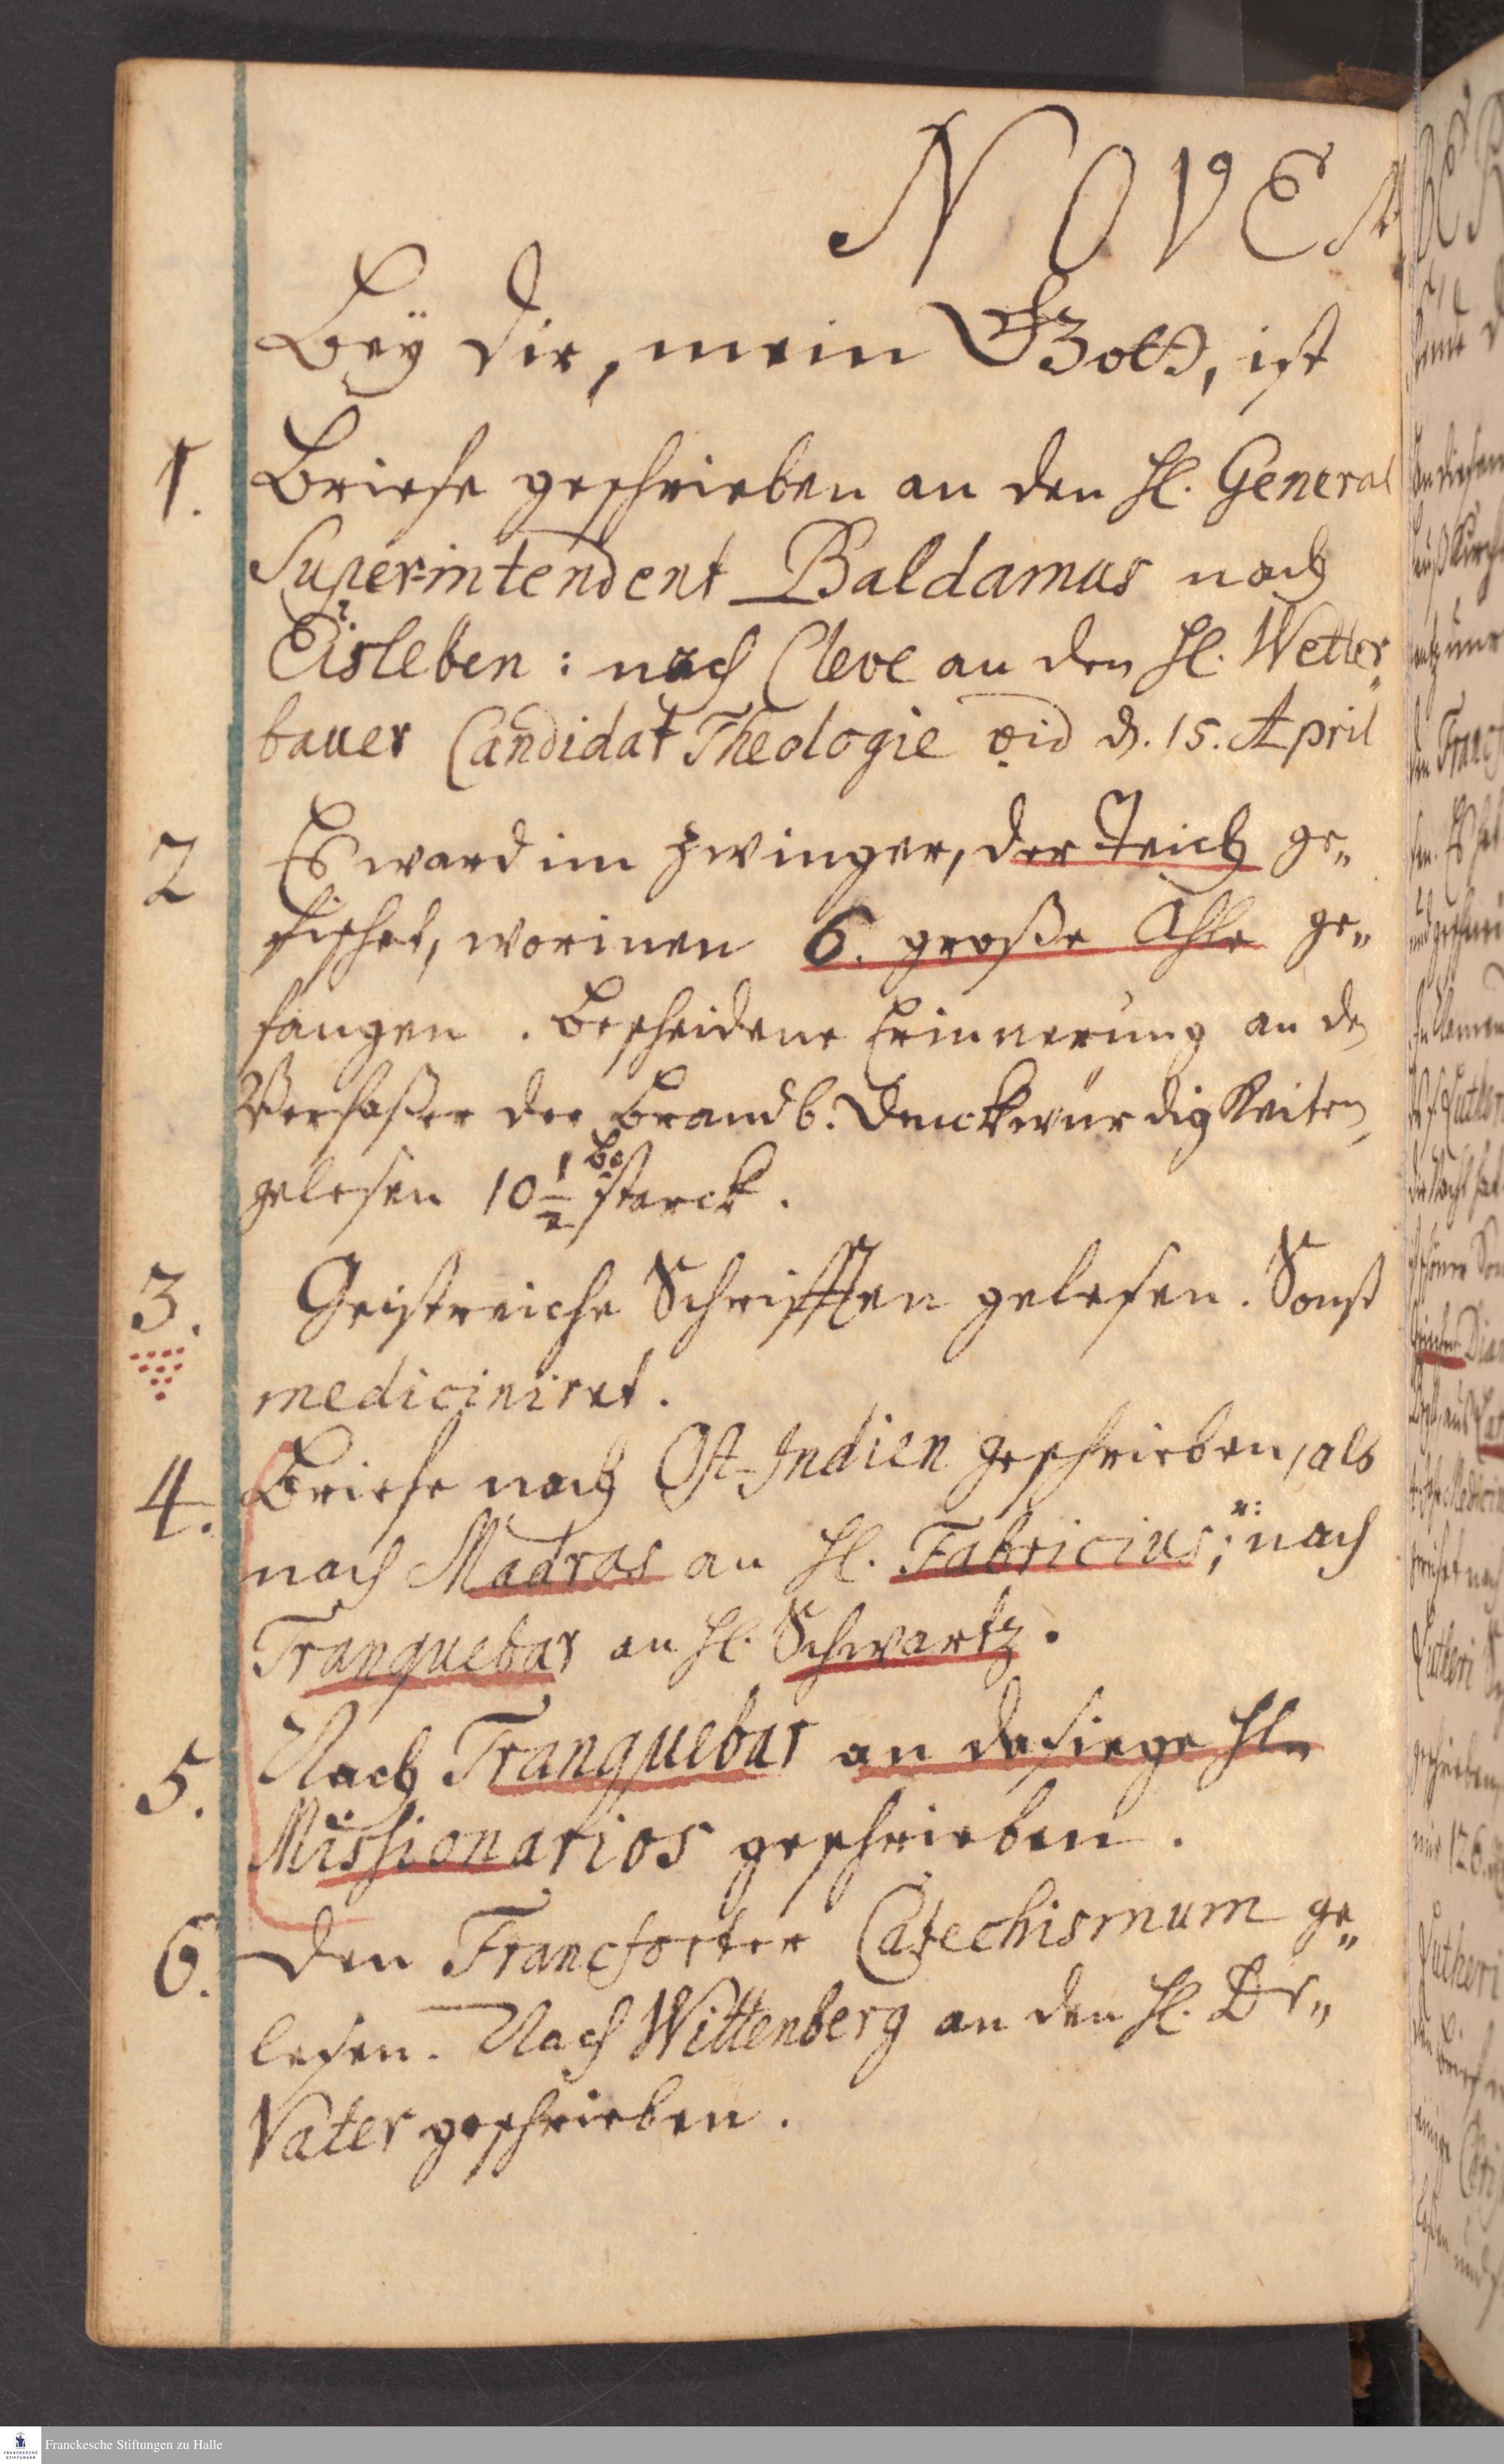 NOVEM
Beÿ dir, mein GOtt, ist
1. Briefe geschrieben an den H. General
Super-intendent Baldamus nach
Eisleben: nach Cleve an den H. Wetter„
bauer Candidat Theologie vid d. 15. April
2 Es ward im Zwinger, der Teich ge„
fischet, worinnen 6. große Ahle ge„
fangen. Bescheidene Erinnerung an den
Verfaßer der Brandb. Denckwürdigkeiten,
gelesen 10 1/2 Bo starck.
3. Geistreiche Schrifften gelesen. Sonst
mediciniret.
4. Briefe nach Ost-Indien geschrieben, als
nach Madras an H. Fabricius; u: nach
Tranquebar an H. Schwartz.
5. Nach Tranquebar an dasiege Hn
Missionarios geschrieben.
6. Den Francforter Catechismum ge„
lesen. Nach Wittenberg an den H. Dr„
Vater geschrieben.
Franckesche Stiftungen zu Halle